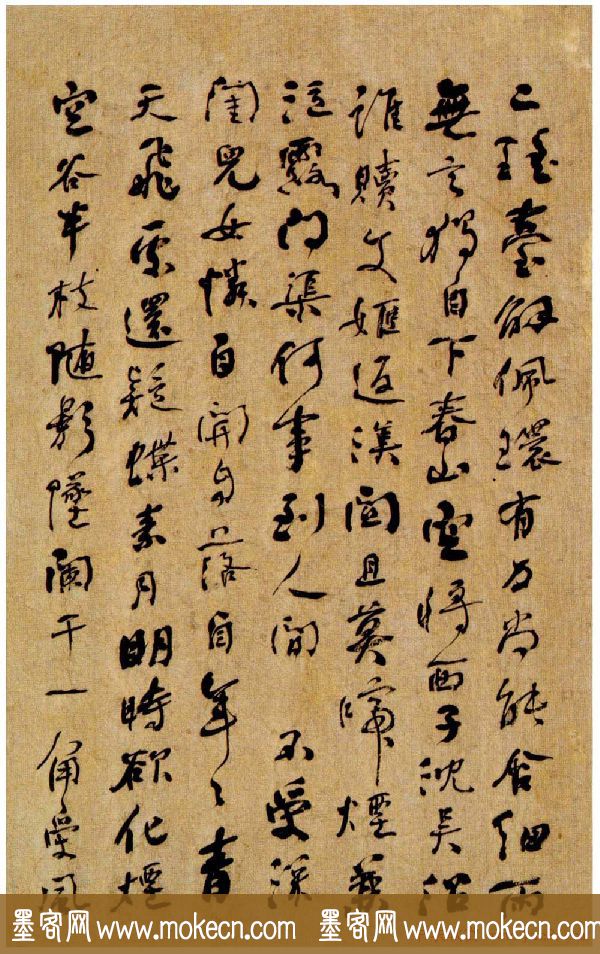 〻瑤臺解佩環有力尚能含細雨
無言獨自下春山空將西子沈吳沼
誰贖文姬返漢關且莫啼煙兼
泣露問渠何事到人間 不受深
閨兒女憐自開自落自年〻青
天飛處還疑蝶素月明時欲化煙
空谷半枝隨影墜闌干一角受風
墨客网 www.mokecn.com 墨客网 www.mokecn.com